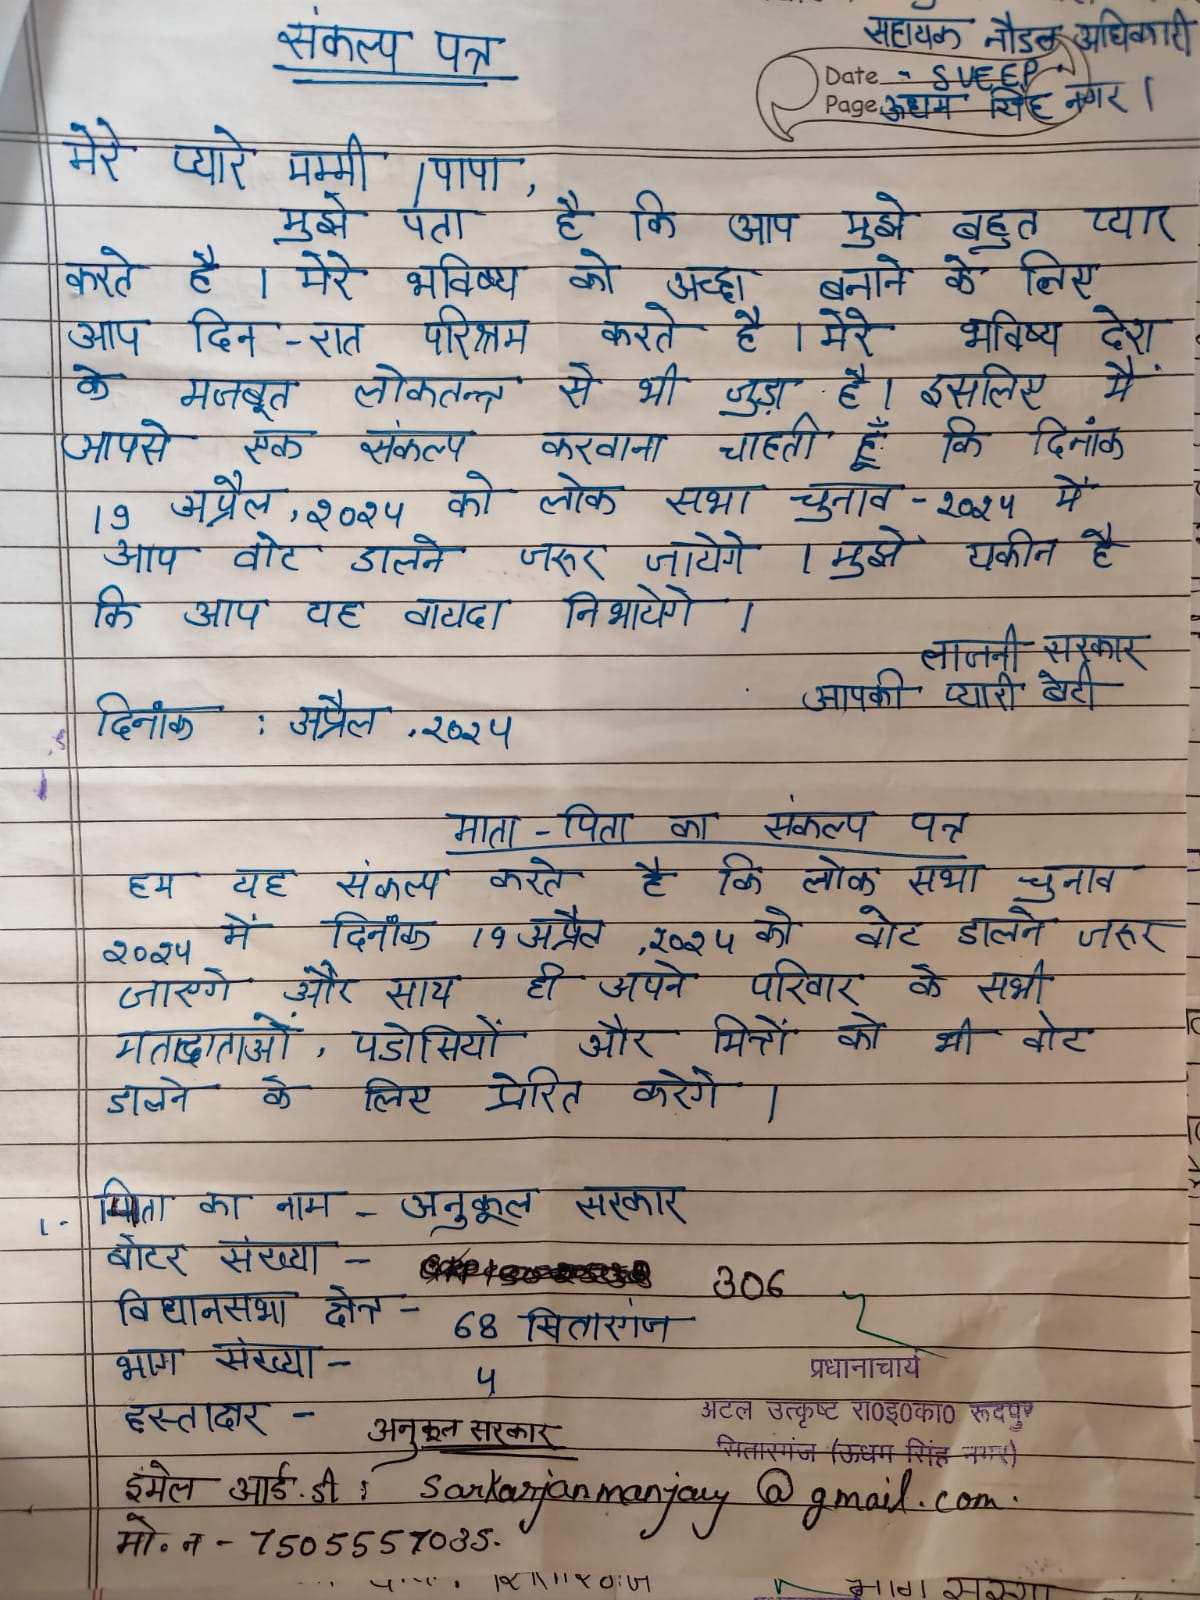 संकल्प पत्र
सहायक नौडल अधिकारी
Date - SVEEP
Page ऊधम सिंह नगर ।
मेरे प्यारे मम्मी / पापा,
मुझे पता है कि आप मुझे बहुत प्यार
करते है । मेरे भविष्य को अच्छा बनाने के लिए
आप दिन - रात परिश्रम करते है । मेरे भविष्य देश
के मजबूत लोकतन्त्र से भी जुड़ा है। इसलिए मैं
आपसे एक संकल्प करवाना चाहती हूँ कि दिनांक
19 अप्रैल, २०२४ को लोक सभा चुनाव - २०२४ में
आप वोट डालने जरूर जायेगे । मुझे यकीन है
कि आप यह वायदा निभायेगे ।
लाजनी सरकार
आपकी प्यारी बेटी
दिनांक : अप्रैल , २०२४
माता - पिता का संकल्प पत्र
हम यह संकल्प करते है कि लोक सभा चुनाव
२०२४ में दिनांक 19 अप्रैल , २०२४ को वोट डालने जरूर
जाएगे और साथ ही अपने परिवार के सभी
मतादाताओं, पडोसियों और मित्रों को भी वोट
डालने के लिए प्रेरित करेगे ।
1. पिता का नाम - अनुकूल सरकार
वोटर संख्या - 306
विधानसभा क्षेत्र - 68 सितारगंज
भाग संख्या - 4
प्रधानाचार्य
हस्ताक्षर - अनुकूल सरकार
अटल उत्कृष्ट रा०इ०का० रूदपुर
सितारगंज (ऊधम सिंह नगर)
ईमेल आई.डी : sarkarjanmanjay@gmail.com.
मो. न - 7505557035.
भाग संख्या